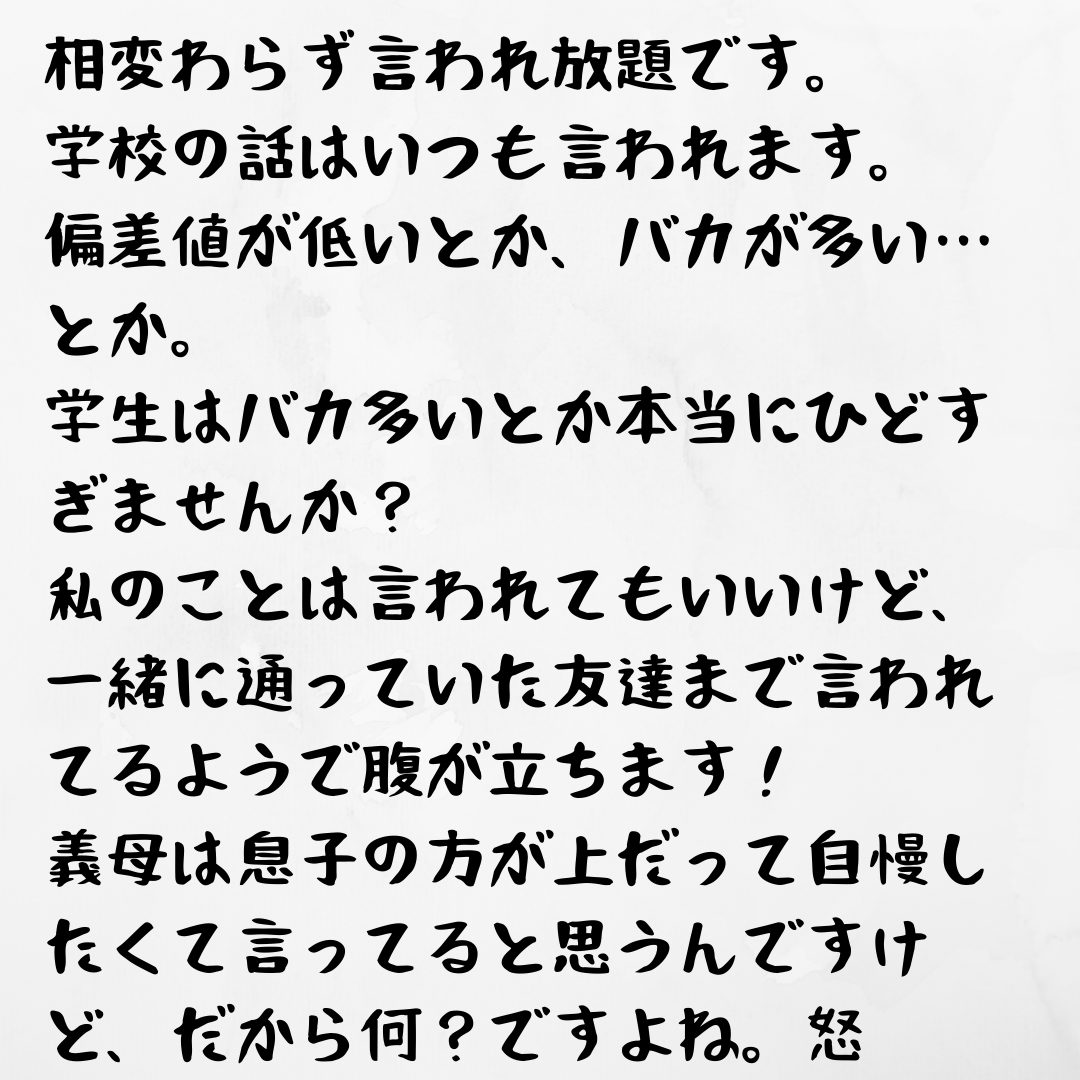 相変わらず言われ放題です。
学校の話はいつも言われます。
偏差値が低いとか、バカが多い…
とか。
学生はバカ多いとか本当にひどす
ぎませんか?
私のことは言われてもいいけど、
一緒に通っていた友達まで言われ
てるようで腹が立ちます!
義母は息子の方が上だって自慢し
たくて言ってると思うんですけ
ど、だから何?ですよね。怒